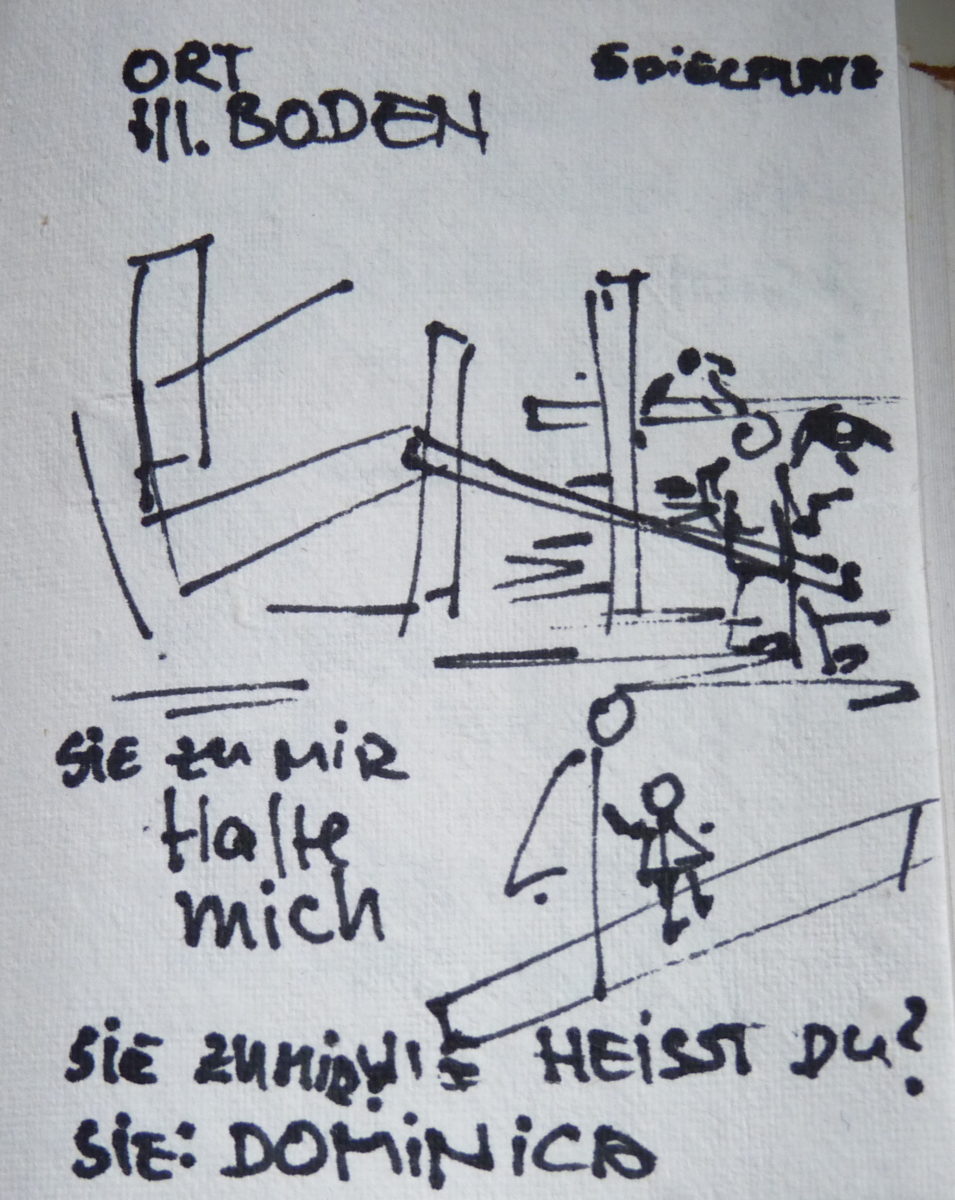 ORT
SPIELPLATZ
III. BODEN
SIE ZU MIR
Halte
mich
SIE ZU MIR: WIE HEISST DU?
SIE: DOMINICA